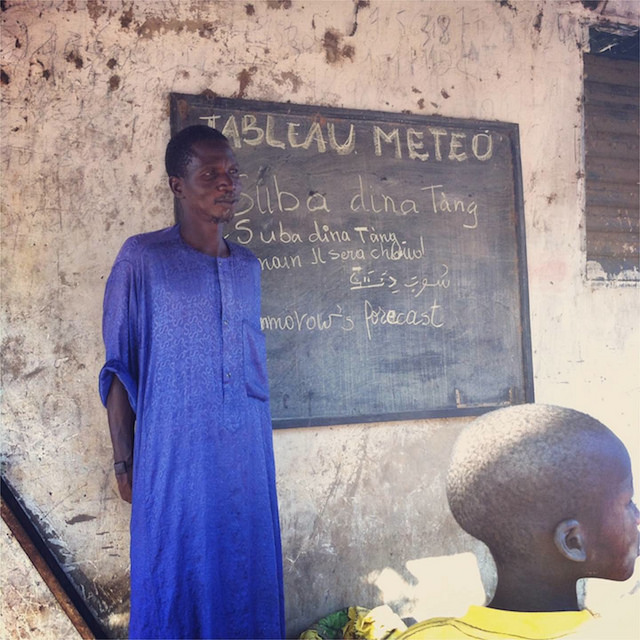 TABLEAU METEO
Suba dina Tàng
Suba dina Tàng
main Il sera chaud
سُوبَ دِنَ تَانگْ
mmorow's forecast